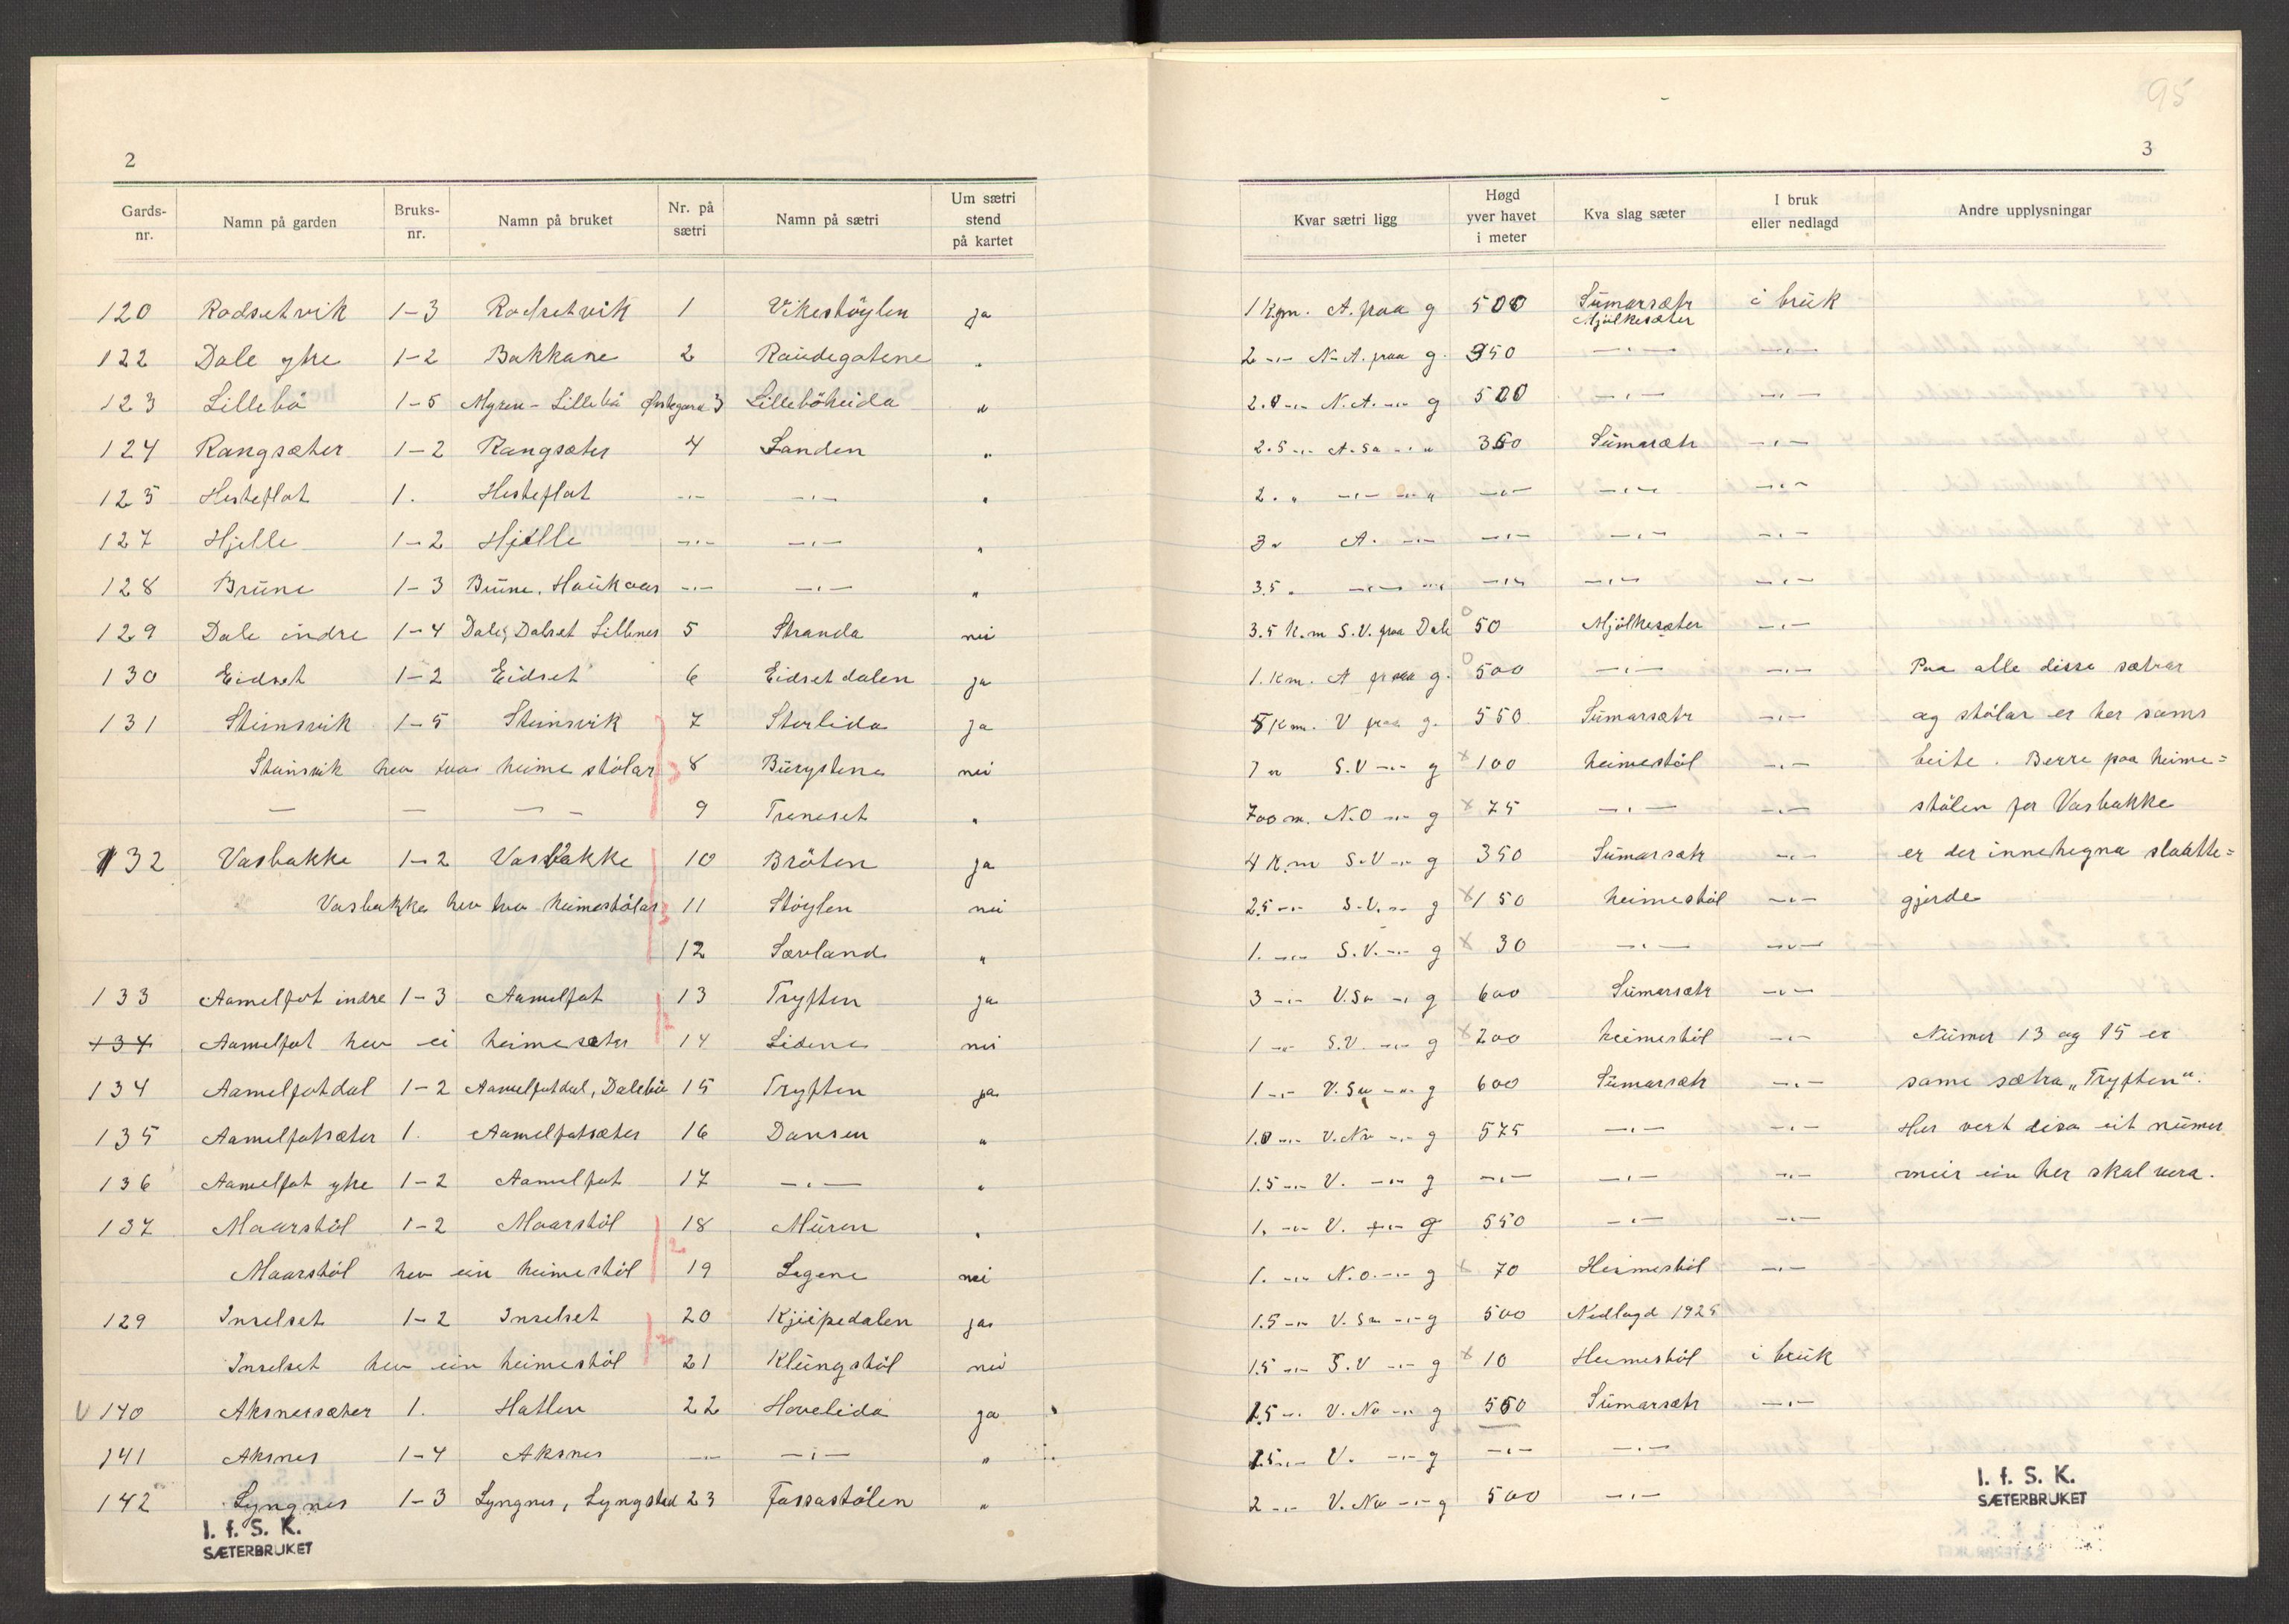 95
2
3
Gards-nr. Namn på garden Bruks-nr. Namn på bruket Nr. på sætri Namn på sætri Um sætri stend på kartet Kvar sætri ligg Høgd yver havet i meter Kva slag sæter I bruk eller nedlagd Andre upplysningar
120 Rodsetvik 1-3 Rodsetvik 1 Vikestöylen ja 1 Kgm. A. fraa g 500 Sumarsætr Mjölkesæter i bruk
122 Dale ytre 1-2 Bakkane 2 Raudegotene " 2 -"- N-A. fraa g. 950 -"- -"-
123 Lillebö 1-5 Myren - Lillebö 3 Lilleböheida " 2.0 -"- N.A. -"- g 500 -"- -"-
124 Rangsæter 1-2 Rangsæter 4 Sanden " 2.5 -"- A-Sa -"- 350 Sumarsætr -"-
125 Hesteflot 1. Hesteflot -"- -"- " 2. " -"- -"- -"- -"- -"-
127 Hjelle 1-2 Hjelle -"- -"- " 3 " A. -"- -"- -"- -"-
128 Brune 1-3 Brune, Haukaas -"- -"- " 3.5 " -"- -"- -"- -"- -"-
129 Dale indre 1-4 Dale, Dalset Lillenes 5 Stranda nei 3.5 K.m S.V. fraa Dale 50 Mjölkesæter -"-
130 Eidset 1-2 Eidset 6 Eidsetdalen ja 1. Km. A fraa g. 500 -"- -"- Paa alle disse sætrar
131 Steinsvik 1-5 Steinsvik 7 Storlida ja 5 Km. V fraa g. 550 Sumarsætr -"- ag stölar er her sams
Steinsvik hev tvo heimestölar 8 Burystene nei 1 " S.V -"- g x 100 heimestöl -"- beite. Berre paa heime=
— — — 9 Treneset " 700 m. N.O -"- g x 75 -"- -"- stölen for Vasbakke
132 Vasbakke 1-2 Vasbakke 10 Bröten ja 4 K.m S.V -"- g 350 Sumarsætr -"- er der innehegna slaatte=
Vasbakke hev tvo heimestölar 11 Stöylen nei 2.5 -"- S.V. -"- g x 150 heimestöl -"- gjerde
12 Sørland " 1. -"- S.V. -"- g x 30 -"- -"-
133 Aamelfot indre 1-3 Aamelfot 13 Tryften ja 3 -"- V.Sa -"- g 600 Sumarsætr -"-
134 Aamelfot hev ei heimesæter 14 Lidene nei 1 -"- S.V. -"- g x 200 heimestöl -"- Numer 13 ag 15 er
134 Aamelfotdal 1-2 Aamelfotdal, Dalebu 15 Tryften ja 1 -"- V.Sa -"- g 600 Sumarsætr -"- same sætra „Tryften".
135 Aamelfotsæter 1. Aamelfotsæter 16 Dansen " 1.0 -"- V.Na -"- g 575 -"- -"- Her vert disa eit numer
136 Aamelfot ytre 1-2 Aamelfot 17 -"- " 1.5 -"- V. -"- g -"- -"- -"- meir ein her skal vera.
137 Maarstöl 1-2 Maarstöl 18 Muren " 1. -"- V. -"- g 550 -"- -"-
Maarstöl hev ein heimestöl 19 Legene nei 1. -"- N.O. -"- g x 70 Heimestöl -"-
129 Inselset 1-2 Inselset 20 Kjeipedalen ja 1.5 -"- V.Sa -"- g 500 Nedlagd 1925
Inselset hev ein heimestöl 21 Klungstöl nei 1.5 -"- S.V -"- g x 10 Heimestöl i bruk
V 140 Aksnessæter 1. Hatlen 22 Hovelida ja 1.5 -"- V.Na -"- g 550 Sumarsætr -"-
141 Aksnes 1-4 Aksnes -"- -"- " 1.5 -"- V. -"- g -"- -"-
142 Lyngnes 1-3 Lyngnes, Lyngstad 23 Fossastölen " 2 -"- V.Na -"- g 500 -"-
I. f. S. K.
SÆTERBRUKET
I. f. S. K.
SÆTERBRUKET